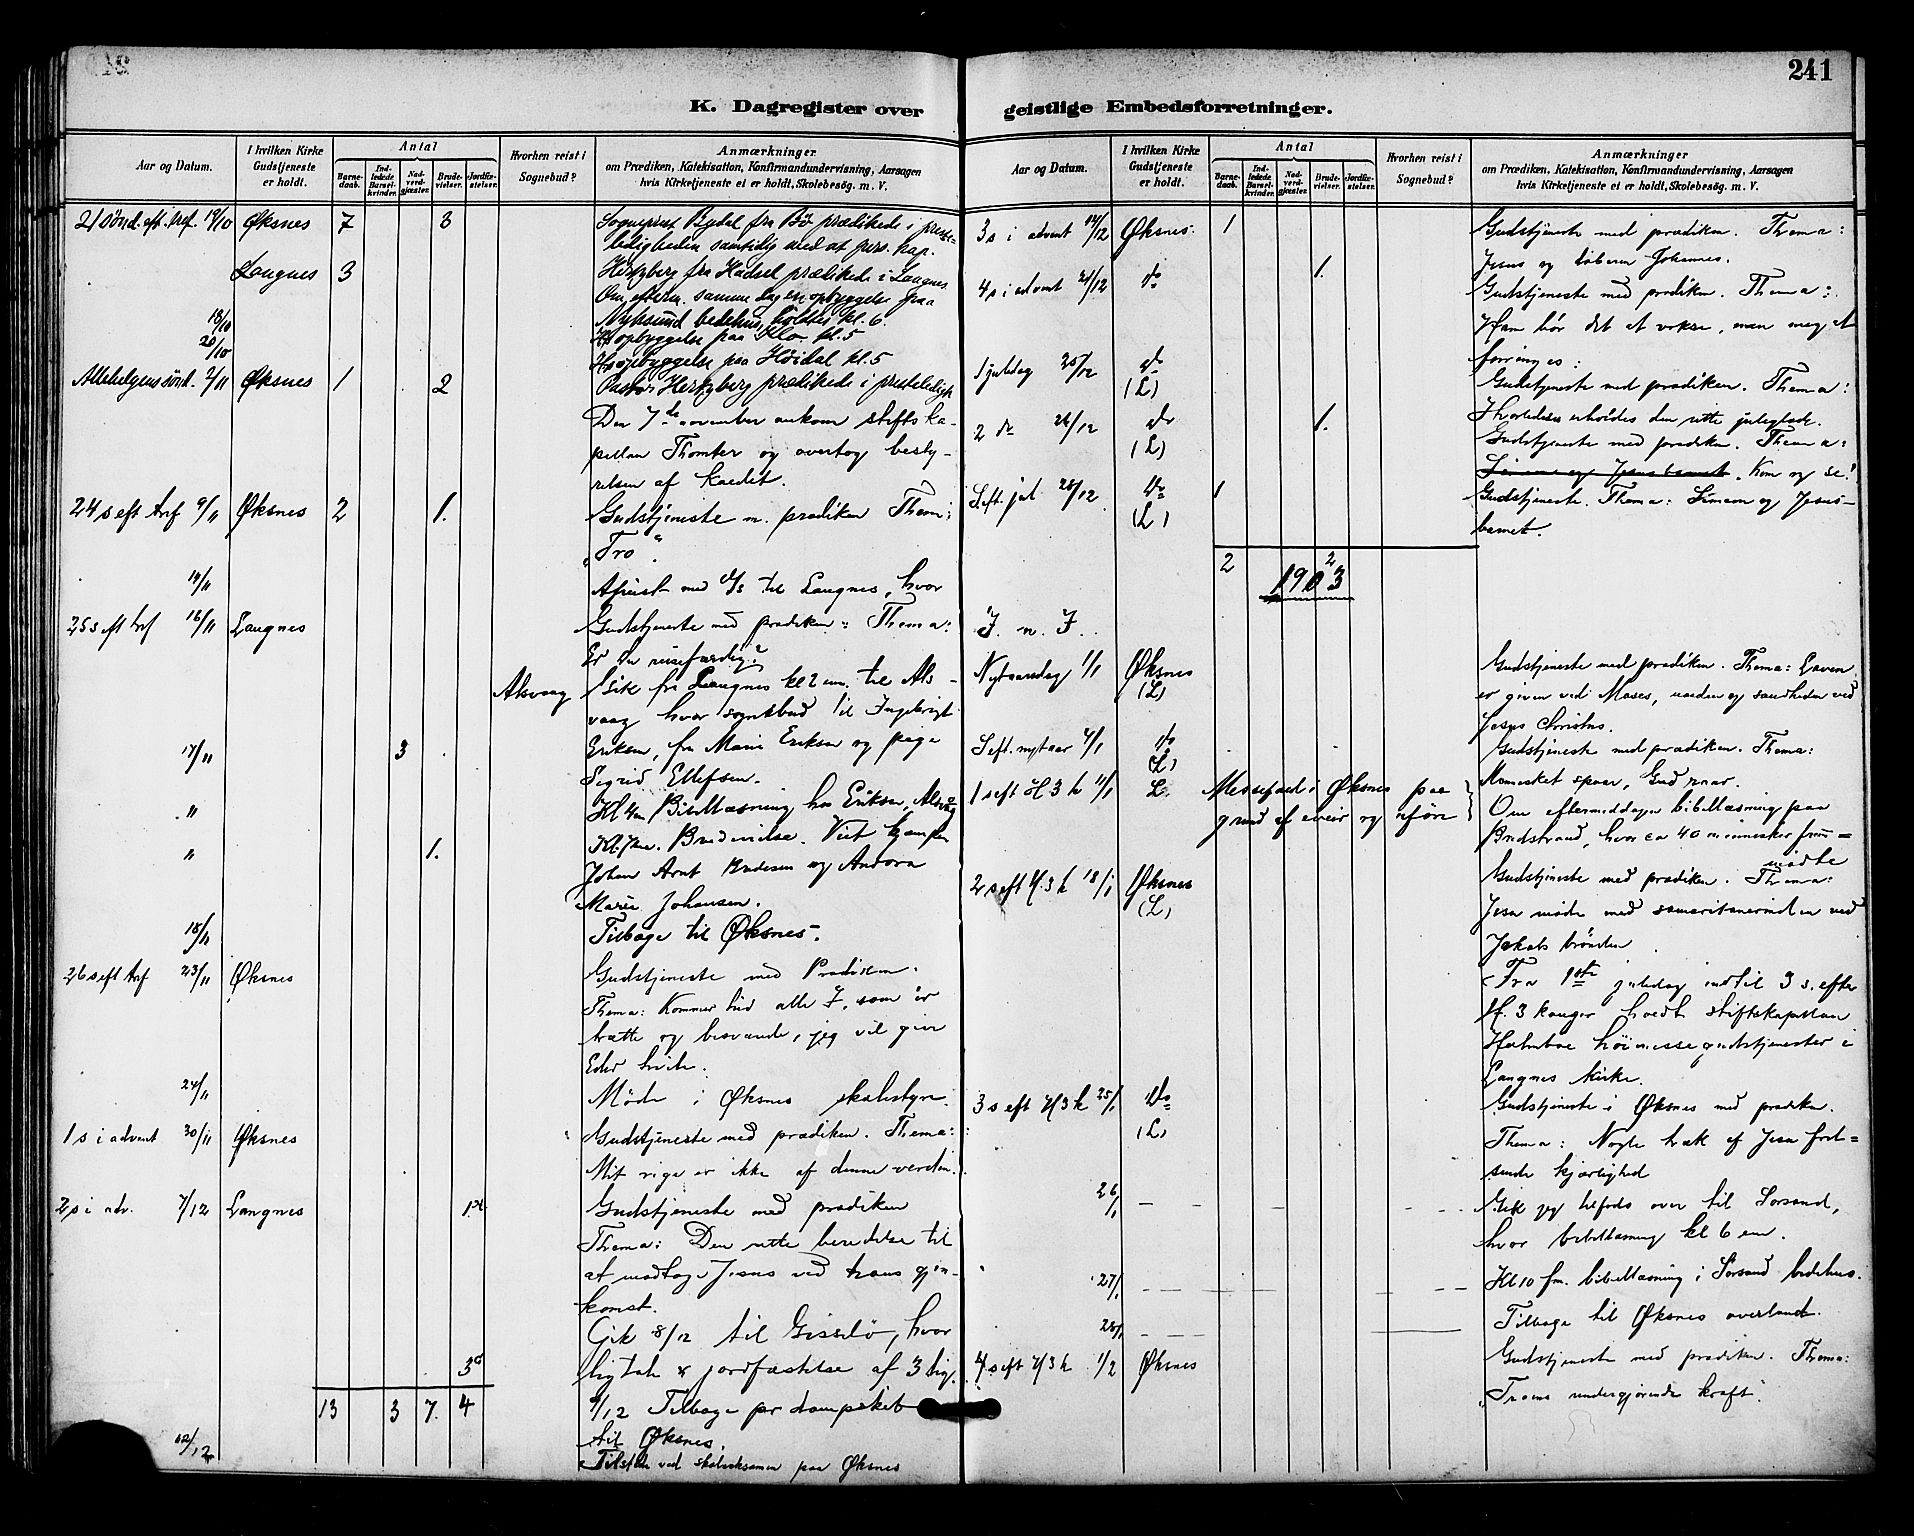 241
K. Dagregister over
Aar og Datum.
I hvilken Kirke Gudstjeneste er holdt.
Antal
Barnedaab.
Indledede Barselkvinder.
Nadverdgjæster.
Brudevielser.
Jordfæstelser.
Hvorhen reist i Sognebud?
Anmærkninger
om Prædiken, Katekisation, Konfirmandundervisning, Aarsagen
hvis Kirketjeneste ei er holdt, Skolebesøg. m. V.
21 sönd. eft. tref. 19/10 Øksnes 7 3 Sogneprest Bydal fra Bö prædikede i preste-
ledigheden samtidig med at pers. kap.
Langnes 3 Hertzberg fra Hadsel prædikede i Langnes
Om efterm. samme dag en opbyggelse paa
Nyksund bedehus, holdtes kl. 6.
18/10 opbyggelse paa Klo kl. 5
20/10 opbyggelse paa Höidal kl. 5
Allehelgens sönd. 2/11 Øksnes 1 2 Pastor Hertzberg prædikede i presteledigh
Den 7de november ankom stiftska-
pellan Thomter og overtog besty-
relsen af kaldet.
24 s eft tref 9/11 Øksnes 2 1. Gudstjeneste m. prædiken Them:
"Tro"
14/11 Afreist med d/s til Langnes, hvor
25 s eft tref 16/11 Langnes Gudstjeneste med prædiken: Thema:
Er du reisefærdig?
Alsvaag Gik fra Langnes kl 2 em. til Als-
vaag hvor sognebud til Ingebrigt
17/11 3 Eriksen, fru Marie Eriksen og pige
Sigrid Ellefsen.
" Kl 4 em Bibellæsning hos Eriksen, Alsvaag
" 1. Kl. 7 em. Brudevielse. Viet
Johan Arnt og Andora
Marie Johansen.
18/11 Tilbage til Øksnes.
26 s eft tref 23/11 Øksnes Gudstjeneste med Prædiken.
Thema: Kommer hid alle I, som er
trætte og besværede, jeg vil give
Eder hvile.
24/11 Möde i Øksnes skolestyre.
1 s i advent 30/11 Øksnes Gudstjeneste med prædiken. Thema:
Mit rige er ikke af denne verden.
2 s i adv. 7/12 Langnes 1 Gudstjeneste med prædiken
Thema: Den rette beredelse til
at modtage Jesus ved hans gjen-
komst.
Gik 8/12 til Gisslö, hvor
3 ligtale & jordfæstelse af 3 lig.
13 3 7. 4 9/12 Tilbage pr dampskib
til Øksnes.
12/12 Tilstede ved skoleeksamen paa Øksnes
geistlige Embedsforretninger.
Aar og Datum.
I hvilken Kirke Gudstjeneste er holdt.
Antal
Barnedaab.
Indledede Barselkvinder.
Nadverdgjæster.
Brudevielser.
Jordfæstelser.
Hvorhen reist i Sognebud?
Anmærkninger
om Prædiken, Katekisation, Konfirmandundervisning, Aarsagen
hvis Kirketjeneste ei er holdt, Skolebesøg. m. V.
3 s i advent 14/12 Øksnes. 1 Gudstjeneste med prædiken. Thema:
Jesus og döberen Johannes.
4 s i advent 21/12 do 1. Gudstjeneste med prædiken. Thema:
Ham bör det at vokse, men meg at
forringes:
1 juledag 25/12 do (L) Gudstjeneste med prædiken. Thema:
Hvorledes erholdes den rette juleglæde.
2 do 26/12 do (L) 1. Gudstjeneste med prædiken. Thema:
Simeon og Jesusbarnet. Kom og se!
S. eft. jul 28/12 do (L) 1 Gudstjeneste. Thema: Simeon og Jesus-
barnet.
2 2
1903
I. n. J.
Nytaarsdag 1/1 Øksnes (L) Gudstjeneste med prædiken. Thema: Loven
er given ved Moses, naaden og sandheden ved
Jesus Christus.
S eft. nytaar 4/1 do (L) Gudstjeneste med prædiken. Thema:
Mennesket spaar, Gud raar.
1 s eft H 3 k 11/1 L. Messefald i Øksnes paa
grund af uveir og uföre
Om eftermiddagen bibellæsning paa
Breidstrand, hvor ca 40 mennesker frem=
mödte
2 s eft H. 3 k 18/1 Øksnes (L) Gudstjeneste med prædiken. Thema:
Jesu möde med samaritanerinden ved
Jakobs brönden.
Fra 1ste juledag indtil 3 s. efter
H. 3 konger holdt stiftskapellan
Holmboe höimessegudstjenester i
Langnes kirke.
3 s eft H 3 k 25/1 do (L) Gudstjeneste i Øksnes med prædiken.
Thema: Nogle træk af Jesu frel=
sende kjærlighed
26/1 Gik jeg tilfods over til Sorsand,
hvor bibellæsning kl 6 em.
27/1 Kl 10 fm. bibellæsning i Sorsand bedehus.
28/1 Tilbage til Øksnes overland.
4 s eft H 3 k 1/2 Øksnes Gudstjeneste med prædiken. Thema:
"Troens undergjörende kraft".